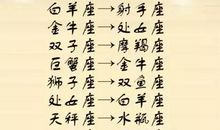 白羊座→射手座
金牛座→处女座
双子座→摩羯座
巨蟹座→金牛座
狮子座→双鱼座
处女座→白羊座
天秤座→水瓶座